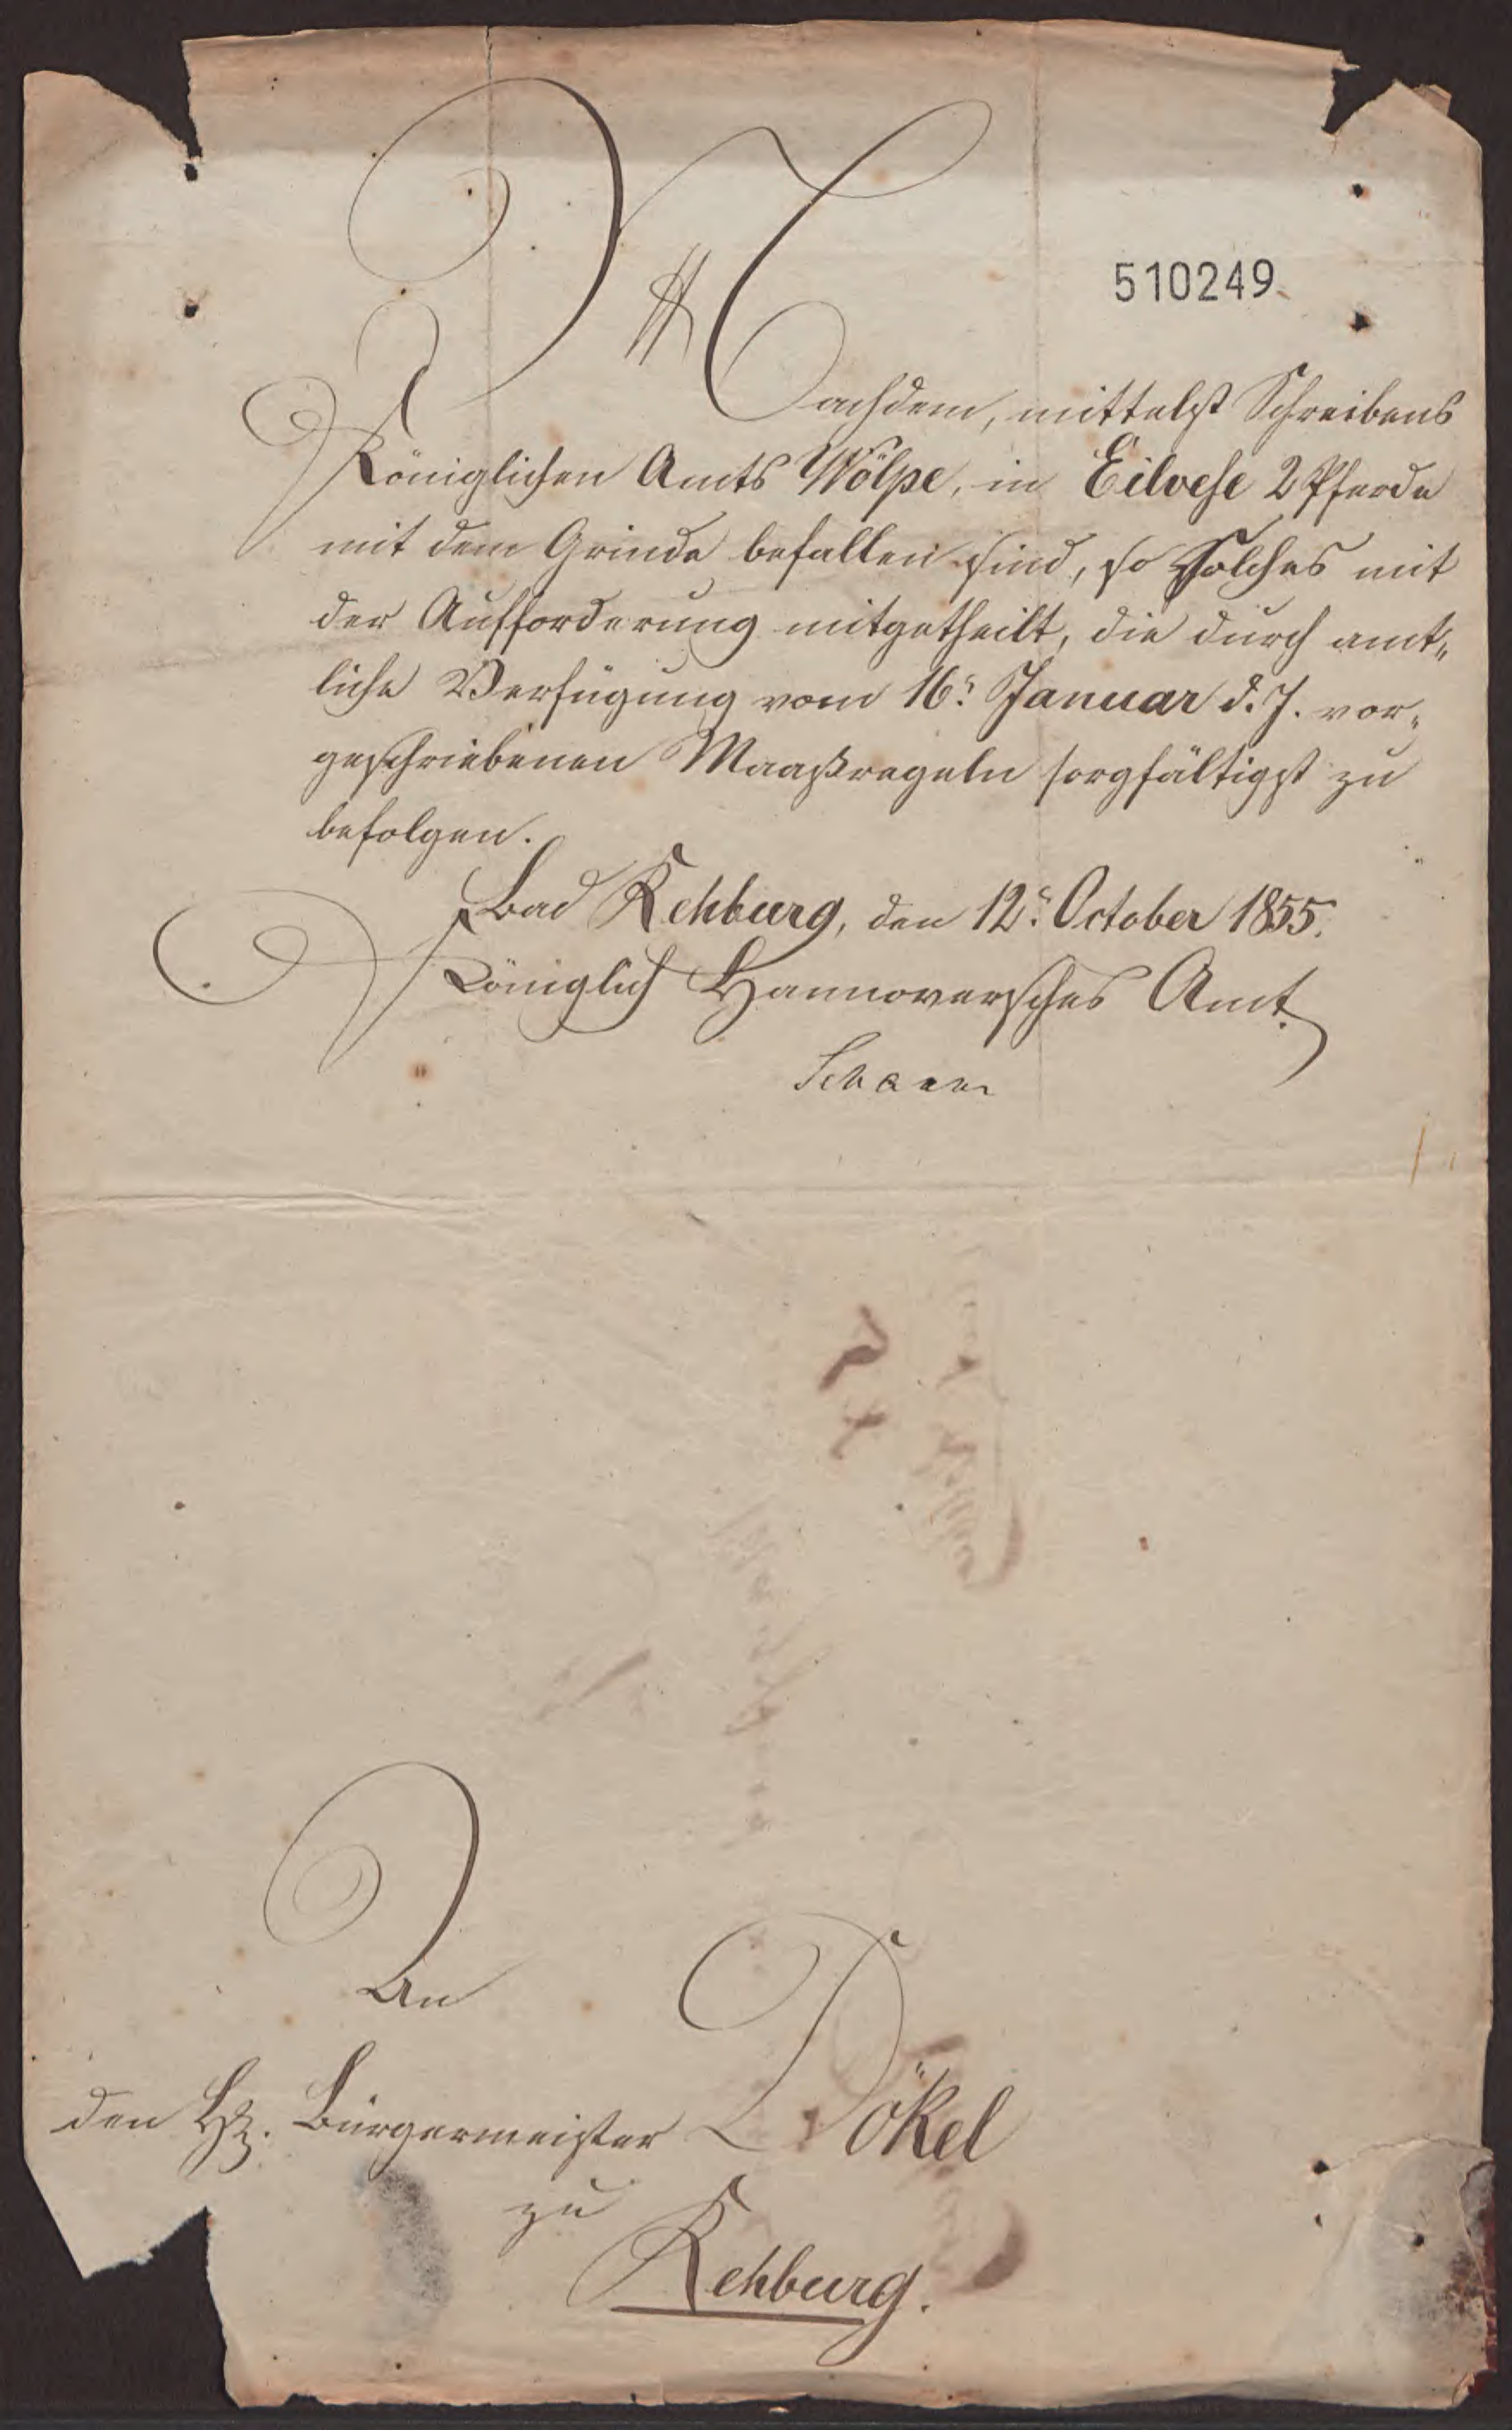 510249
Nachdem, mittelst Schreibens
Königlichen Amts Wölpe, in Eilvese 2 Pferde
mit dem Grinde befallen sind, so Solches mit
der Aufforderung mitgetheilt, die durch amt„
liche Verfügung vom 16ⁿ Januar d. J. vor„
geschriebenen Maaßregeln sorgfältigst zu
befolgen.
Bad Rehburg, den 12ⁿ October 1855.
Königlich Hannoversches Amt.
An
den H. Bürgermeister Dökel
zu
Rehburg.